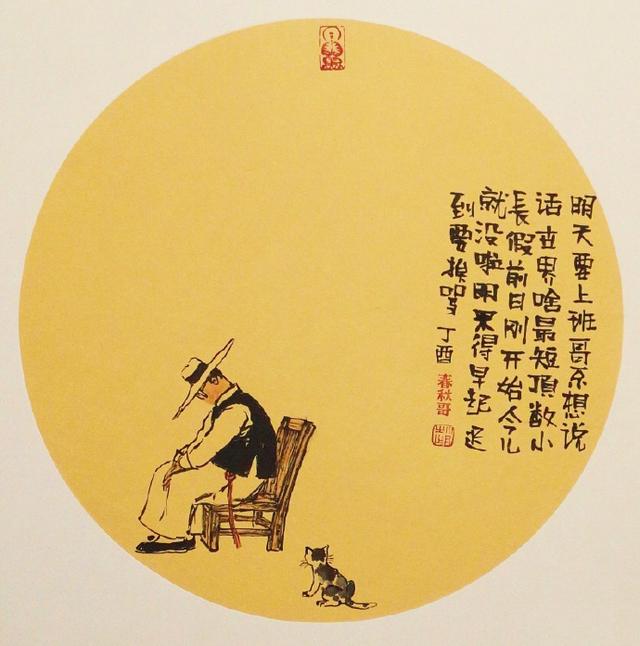 明天要上班哥不想说
话世界啥最短頂数小
長假前日刚开始今儿
就没啦明得早起迟
到要挨骂 丁酉
春秋哥